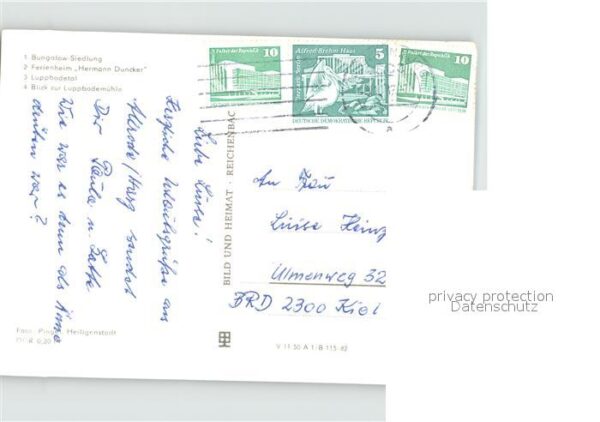 1 Bungalow-Siedlung
2 Ferienheim „Hermann Duncker"
3 Luppbodetal
4 Blick zur Luppbodemühle
Palast der Republik 10
Alfred-Brehm-Haus 5
DEUTSCHE DEMOKRATISCHE REPUBLIK
Palast der Republik 10
Liebe Luise!
Herzliche Urlaubsgrüße aus
Allrode/Harz sendet
Dir Paula u.
Wie war es denn als
denken war?
BILD UND HEIMAT · REICHENBAC
An Frau
Luise Heinz
Ulmenweg 32
BRD 2300 Kiel
Foto: Heiligenstadt
V 11 50 A 1/B 115/82
privacy protection
Datenschutz